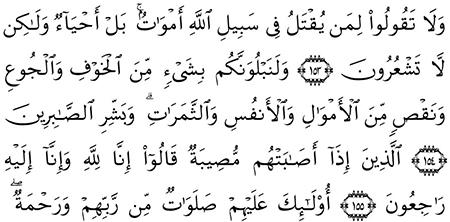 وَلَا تَقُولُوا۟ لِمَن يُقْتَلُ فِى سَبِيلِ ٱللَّهِ أَمْوَٰتٌۢ ۚ بَلْ أَحْيَآءٌ وَلَٰكِن
لَّا تَشْعُرُونَ ﴿١٥٣﴾ وَلَنَبْلُوَنَّكُم بِشَىْءٍ مِّنَ ٱلْخَوْفِ وَٱلْجُوعِ
وَنَقْصٍ مِّنَ ٱلْأَمْوَٰلِ وَٱلْأَنفُسِ وَٱلثَّمَرَٰتِ ۗ وَبَشِّرِ ٱلصَّٰبِرِينَ
﴿١٥٤﴾ ٱلَّذِينَ إِذَآ أَصَٰبَتْهُم مُّصِيبَةٌ قَالُوٓا۟ إِنَّا لِلَّهِ وَإِنَّآ إِلَيْهِ
رَٰجِعُونَ ﴿١٥٥﴾ أُو۟لَٰٓئِكَ عَلَيْهِمْ صَلَوَٰتٌ مِّن رَّبِّهِمْ وَرَحْمَةٌ ۖ